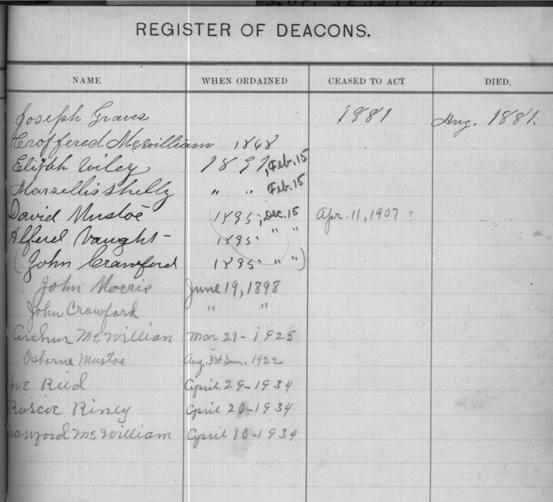 REGISTER OF DEACONS.
NAME WHEN ORDAINED CEASED TO ACT DIED.
Joseph Graves 1881 Aug. 1881.
Croffered McWilliam 1868
Elijah Wiley 1891, Feb. 15
Marsellis Shelly " " Feb. 15
David Mustoe 1895, Dec. 15 Apr. 11, 1907 ?
Alferd Vaught 1895 " "
(John Crawford 1895 " ")
John Morris June 19, 1898
John Crawford " "
Arthur McWilliam Mar 21 - 1925
Osborne Mustoe Aug. 3rd Sun. 1922
Ried April 29 - 1934
Roscoe Riney April 20 - 1934
rawford McWilliam April 10 - 1934